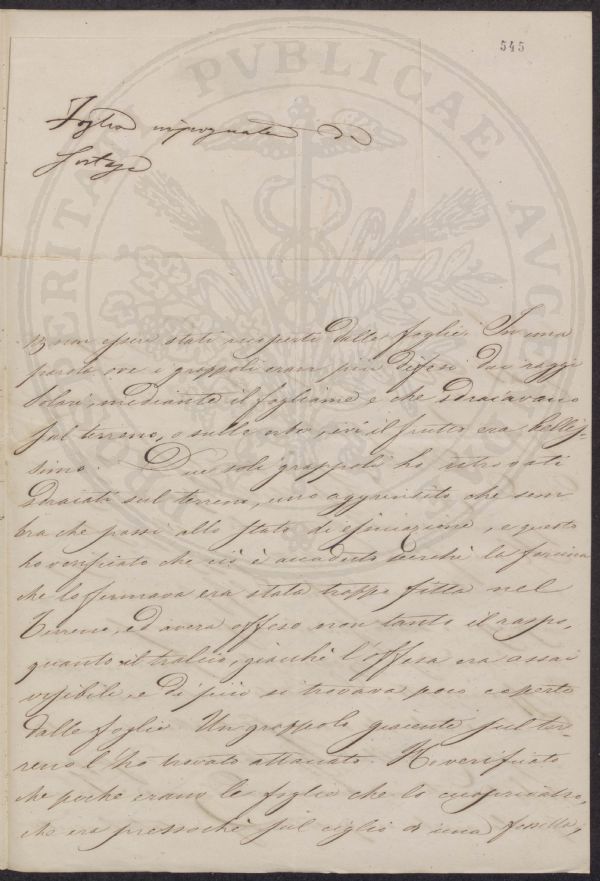 545
Foglia impregnata di
PVBLICAE
e non essere stati ricoperti dalle foglie. In una
parola ove i grappoli eran più difesi dai raggi
solari, mediante il fogliame e che sdraiavano
sul terreno, o sulle erbe, ivi il frutto era bellis-
simo. Due soli grappoli ho ritrovati
sdraiati sul terreno, uno aggrinzito che sem
bra che passi allo stato di essiccazione, e questo
ho verificato che ciò è accaduto perchè la forcina
che lo fermava era stata troppo fitta nel
terreno, ed aveva offeso non tanto il raspo,
quanto il tralcio, giacchè l'offesa era assai
visibile, e di più si trovava poco coperto
dalle foglie. Un grappolo giacente sul ter-
reno l'ho trovato attaccato. Ho verificato
che poche erano le foglie che lo
che era pressochè sul ciglio di una fossetta,